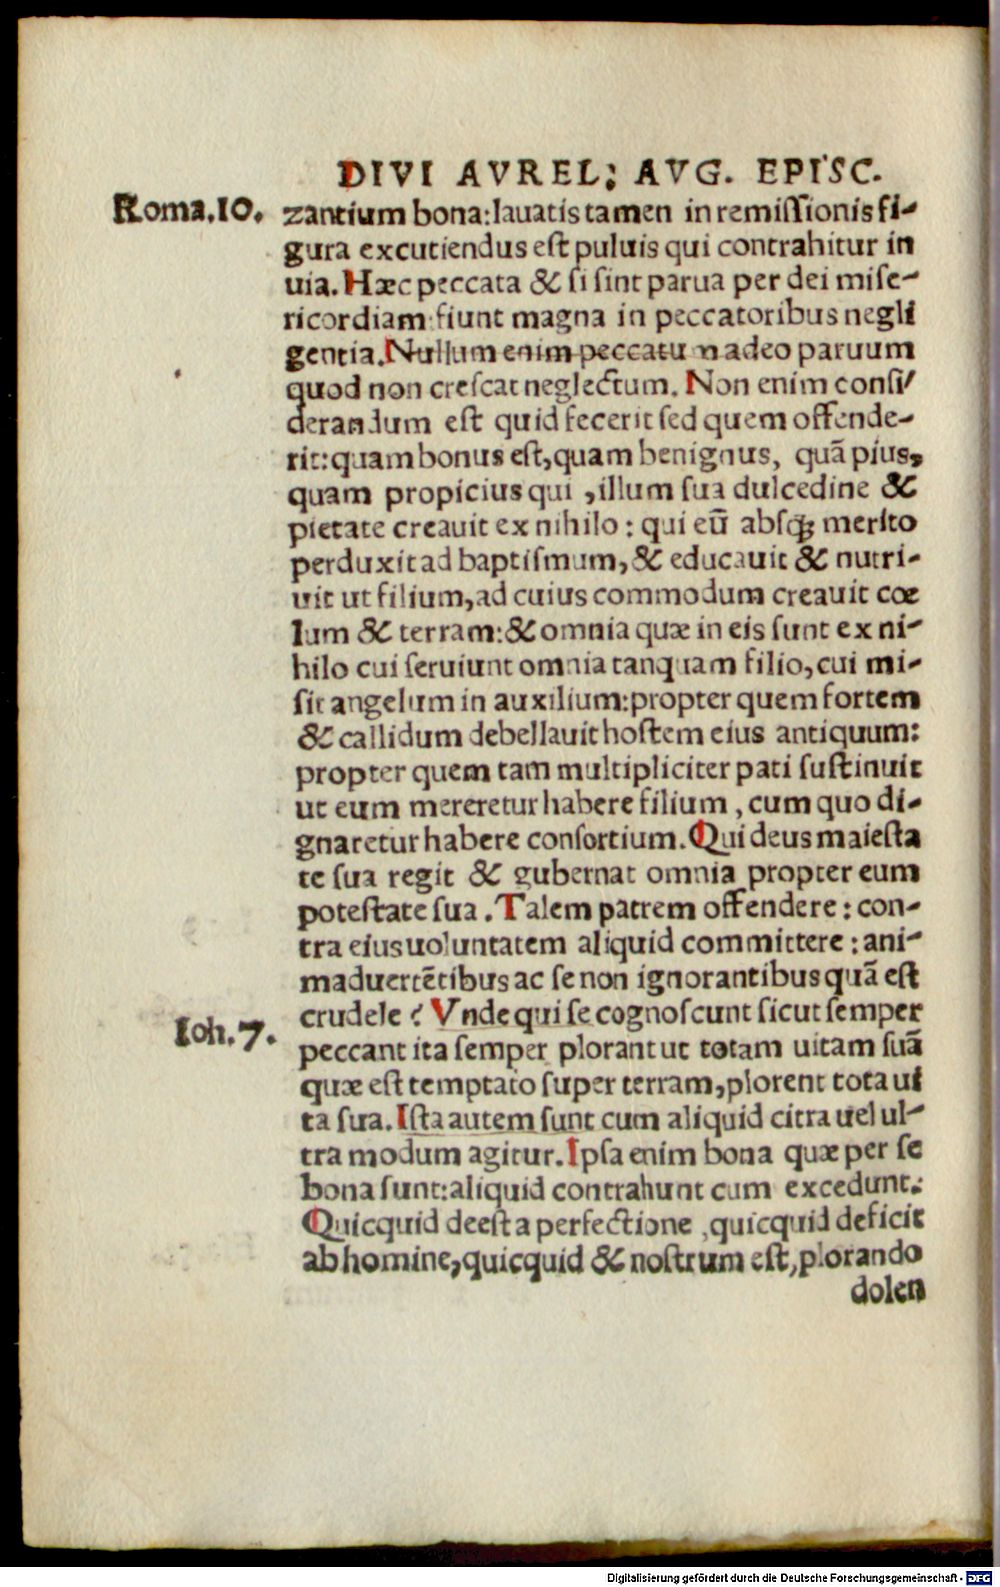 DIVI AVREL; AVG. EPISC.
Roma.10. zantium bona:lauatis tamen in remissionis fi-
gura excutiendus est puluis qui contrahitur in
uia. Hæc peccata & si sint parua per dei mise-
ricordiam:fiunt magna in peccatoribus negli
gentia. Nullum enim peccatu m adeo paruum
quod non crescat neglectum. Non enim consi/
derandum est quid fecerit sed quem offende-
rit:quam bonus est, quam benignus, quā pius,
quam propicius qui ,illum sua dulcedine &
pietate creauit ex nihilo : qui eū absqꝫ merito
perduxit ad baptismum, & educauit & nutri-
uit ut filium, ad cuius commodum creauit cœ
lum & terram:& omnia quæ in eis sunt ex ni-
hilo cui seruiunt omnia tanquam filio, cui mi-
sit angelum in auxilium:propter quem fortem
& callidum debellauit hostem eius antiquum:
propter quem tam multipliciter pati sustinuit
ut eum mereretur habere filium , cum quo di-
gnaretur habere consortium. Qui deus maiesta
te sua regit & gubernat omnia propter eum
potestate sua . Talem patrem offendere : con-
tra eius uoluntatem aliquid committere : ani-
maduertētibus ac se non ignorantibus quā est
crudele ? Vnde qui se cognoscunt sicut semper
Ioh.7. peccant ita semper plorant ut totam uitam suā
quæ est temptato super terram, plorent tota ui
ta sua. Ista autem sunt cum aliquid citra uel ul-
tra modum agitur. Ipsa enim bona quæ per se
bona sunt:aliquid contrahunt cum excedunt:
Quicquid deest a perfectione ,quicquid deficit
ab homine, quicquid & nostrum est, plorando
dolen
Digitalisierung gefördert durch die Deutsche Forschungsgemeinschaft - DFG